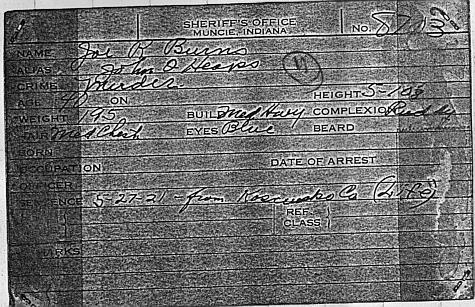 SHERIFF'S OFFICE
MUNCIE, INDIANA
No.
NAME Joe R Burns
ALIAS John O Heaps
CRIME Murder
AGE ON HEIGHT 5-10
WEIGHT 195 BUIL Med Havy COMPLEXIO Ruddy
HAIR Med Chest EYES Blue BEARD
BORN
OCCUPATION DATE OF ARREST
OFFICER
SENTENCE 5-27-21 - from Kosciusko Co (Life)
REF.
CLASS
MARKS